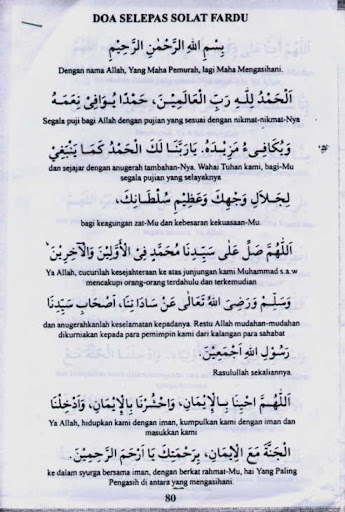 DOA SELEPAS SOLAT FARDU
بِسْمِ اللهِ الرَّحْمٰنِ الرَّحِيْمِ
Dengan nama Allah, Yang Maha Pemurah, lagi Maha Mengasihani.
اَلْحَمْدُ لِلّٰهِ رَبِّ الْعَالَمِيْنَ، حَمْدًا يُوَافِيْ نِعَمَهُ
Segala puji bagi Allah dengan pujian yang sesuai dengan nikmat-nikmat-Nya
وَيُكَافِىءُ مَزِيْدَهُ. يَارَبَّنَا لَكَ الْحَمْدُ كَمَا يَنْبَغِيْ
dan sejajar dengan anugerah tambahan-Nya. Wahai Tuhan kami, bagi-Mu
segala pujian yang selayaknya
لِجَلاَلِ وَجْهِكَ وَعَظِيْمِ سُلْطَانِكَ،
bagi keagungan zat-Mu dan kebesaran kekuasaan-Mu.
اَللّٰهُمَّ صَلِّ عَلَى سَيِّدِنَا مُحَمَّدٍ فِى الْأَوَّلِيْنَ وَالْآخِرِيْنَ
Ya Allah, cucurilah kesejahteraan ke atas junjungan kami Muhammad s.a.w
mencakupi orang-orang terdahulu dan terkemudian
وَسَلِّمْ وَرَضِيَ اللهُ تَعَالَى عَنْ سَادَاتِنَا، اَصْحَابِ سَيِّدِنَا
dan anugerahkanlah keselamatan kepadanya. Restu Allah mudahan-mudahan
dikurniakan kepada para pemimpin kami dari kalangan para sahabat
رَسُوْلِ اللهِ اَجْمَعِيْنَ.
Rasulullah sekaliannya.
اَللّٰهُمَّ اَحْيِنَا بِالْإِيْمَانِ، وَاحْشُرْنَا بِالْإِيْمَانِ، وَاَدْخِلْنَا
Ya Allah, hidupkan kami dengan iman, kumpulkan kami dengan iman dan
masukkan kami
الْجَنَّةَ مَعَ الْإِيْمَانِ، بِرَحْمَتِكَ يَا اَرْحَمَ الرَّحِمِيْنَ.
ke dalam syurga bersama iman, dengan berkat rahmat-Mu, hai Yang Paling
Pengasih di antara yang mengasihani.
80